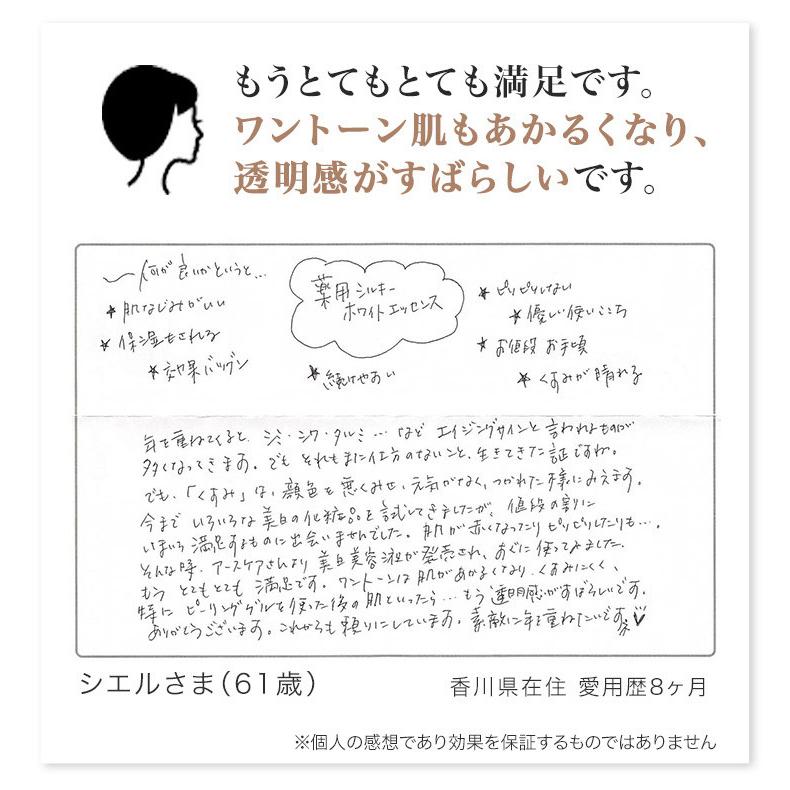 もうとてもとても満足です。
ワントーン肌もあかるくなり、
透明感がすばらしいです。
何が良いかというと…
★肌なじみがいい
★保湿もされる
★効果バツグン
薬用シルキー
ホワイトエッセンス
★続けやすい
★ピリピリしない
★優しい使いごこち
★お値段お手頃
★くすみが晴れる
年を重ねてくると、シミ・シワ・タルミ…など エイジングサインと言われるものが
多くなってきます。でも それもまた仕方のないこと、生きてきた証ですわ。
でも、「くすみ」は、顔色を悪くみせ、元気がなく、つかれた様にみえます。
今まで いろいろな美白の化粧品を試してきましたが、値段の割に
いまいち満足するものに出会いませんでした。肌が赤くなったりピリピリしたりも…。
そんな時、アースケアさんより 美白美容液が発売され、すぐに使ってみました。
もう とてもとても 満足です。ワントーンは肌があかるくなり、くすみにくく、
特に ピーリングゲルを使った後の肌といったら…もう透明感がすばらしいです。
ありがとうございます。これからも頼りにしています。素敵に年を重ねたいです
シエルさま(61歳)
香川県在住 愛用歴8ヶ月
※個人の感想であり効果を保証するものではありません